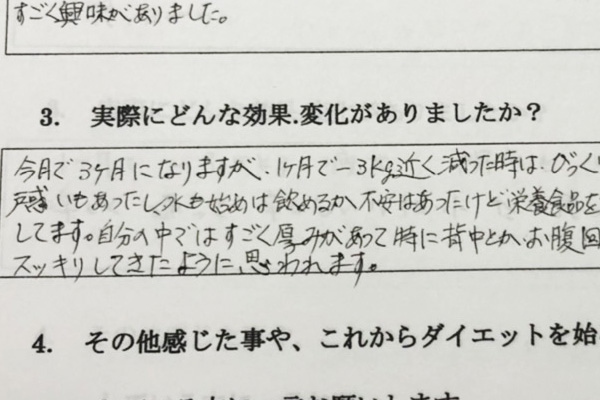 すごく興味がありました。
3. 実際にどんな効果.変化がありましたか?
今月で3ヶ月になりますが、1ヶ月で-3kg近く減った時は、びっく
戸惑いもあったし、水も始めは飲めるか不安はあったけど栄養食品を
してます。自分の中ではすごく厚みがあって時に背中とか、お腹回
スッキリしてきたように、思われます。
4. その他感じた事や、これからダイエットを始